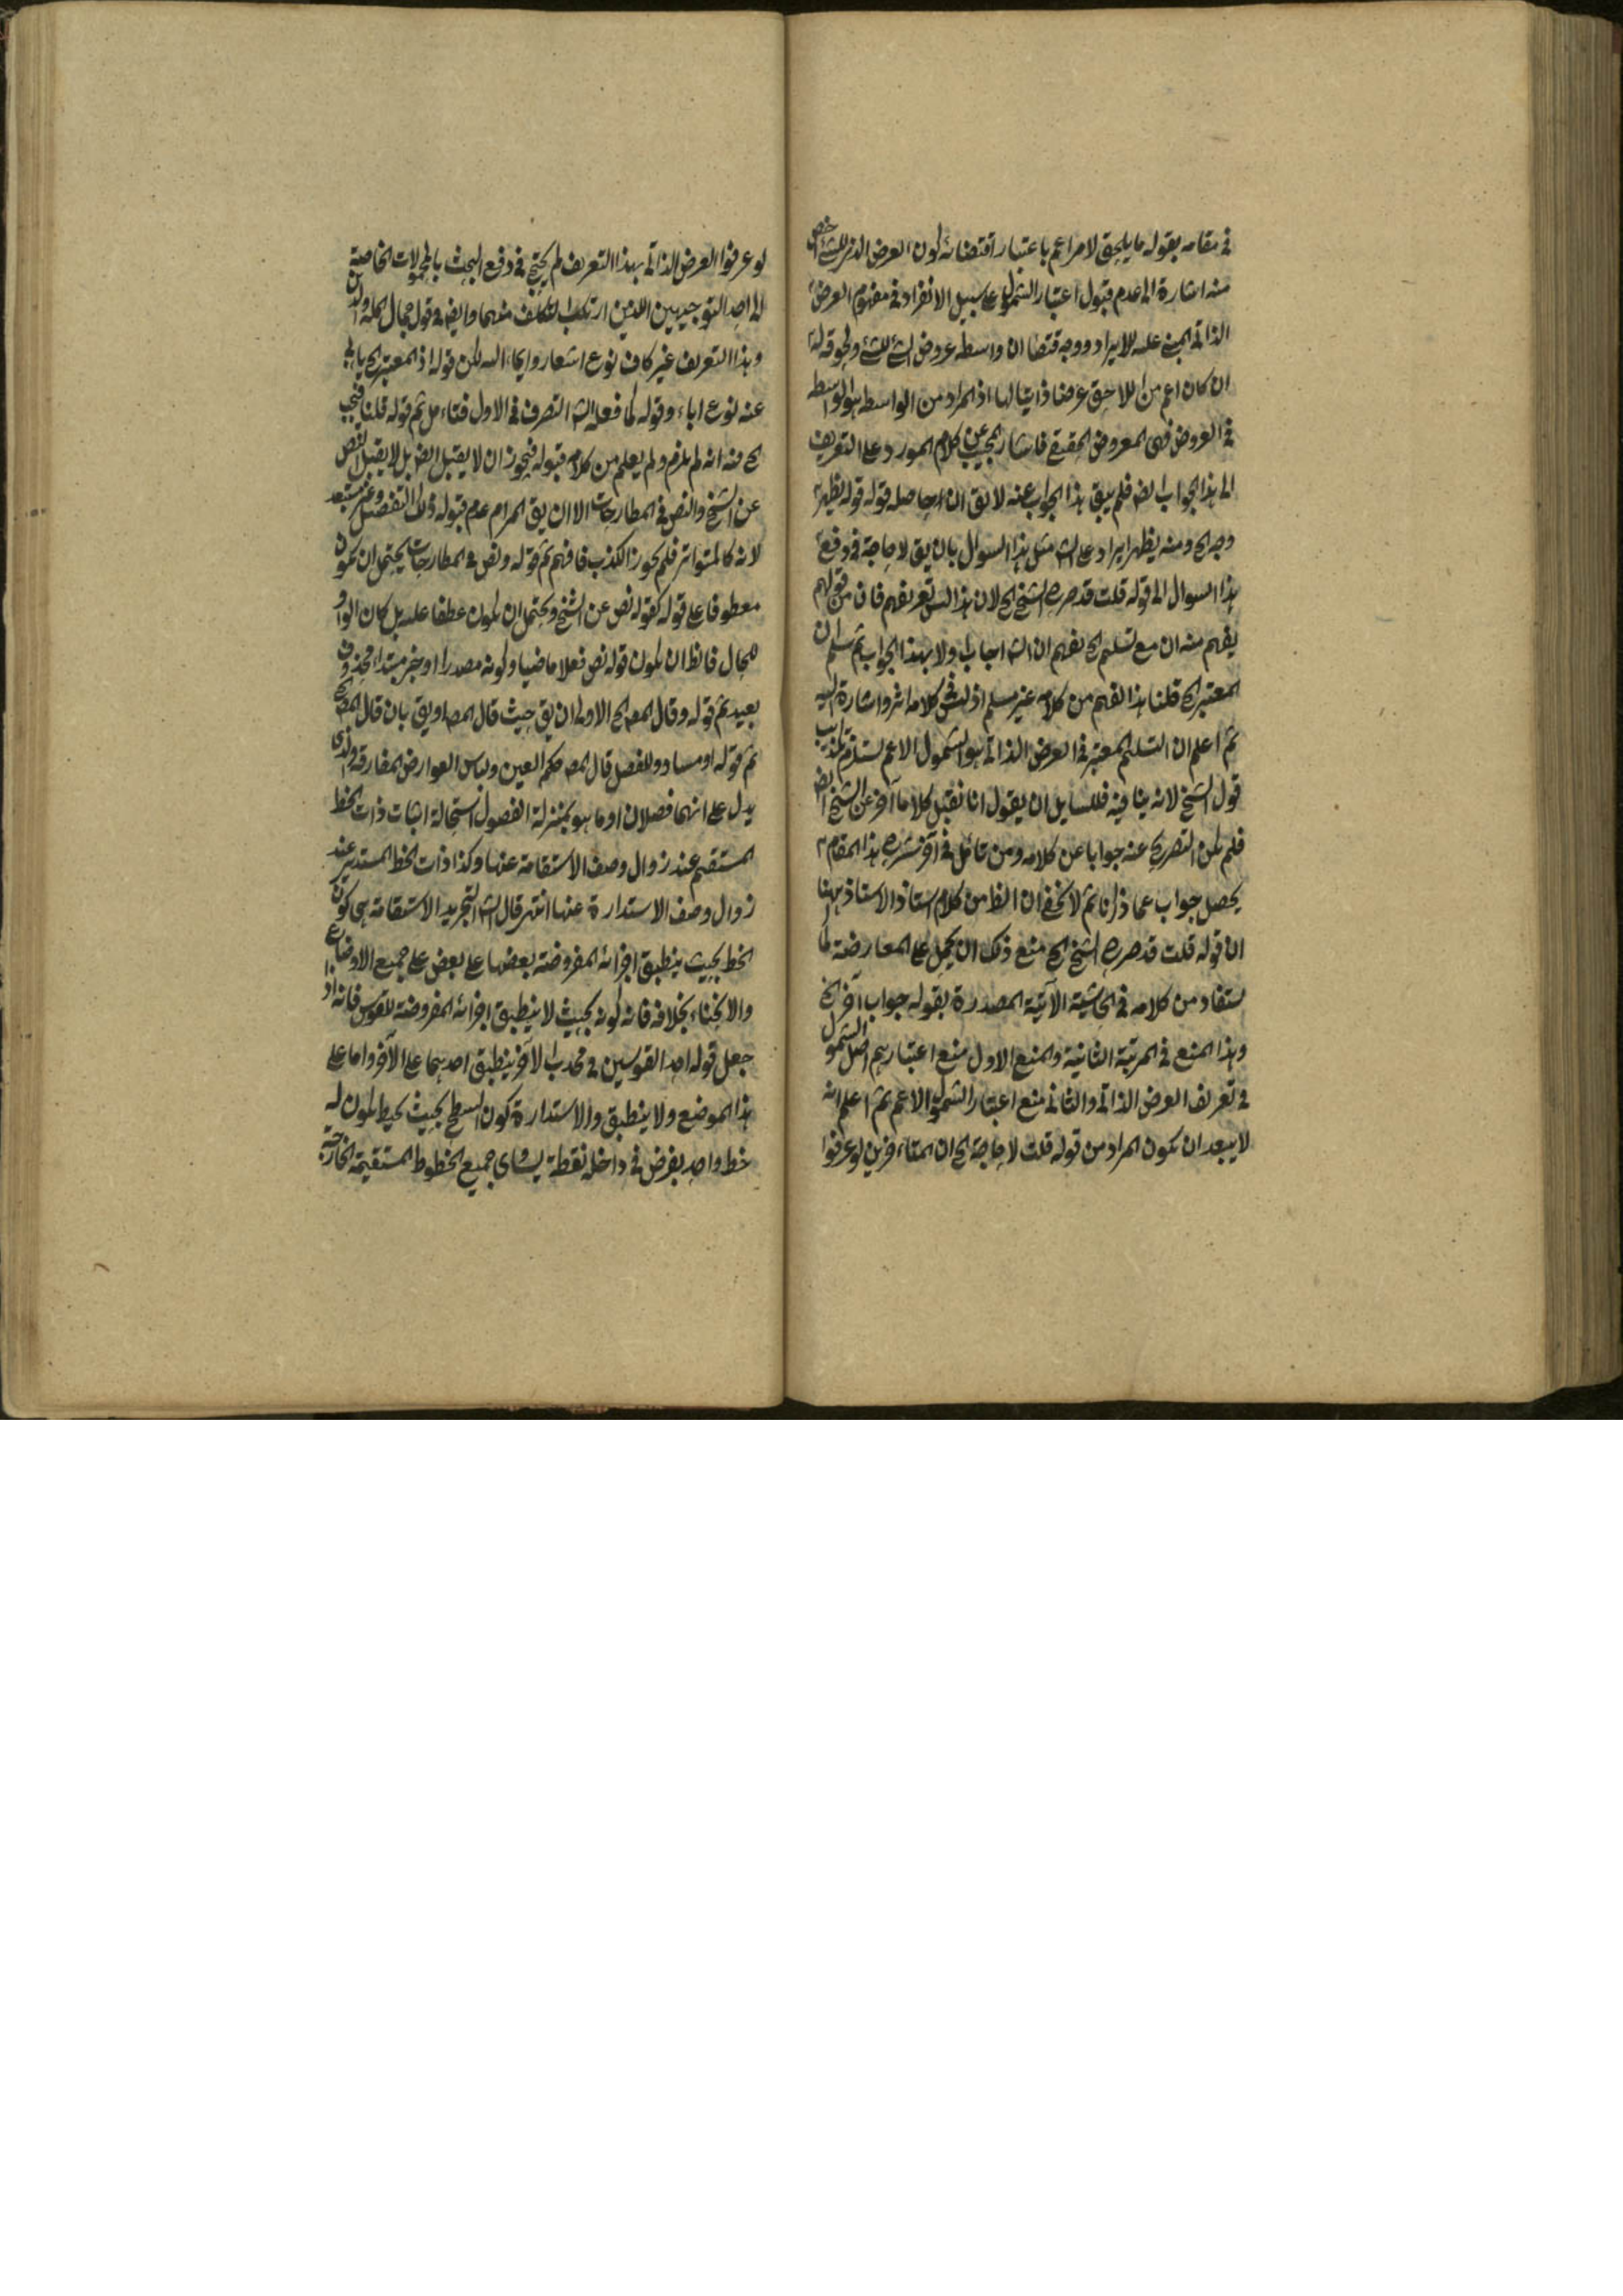 في مقامه بقوله ما يلحق لامر اعم باعتبار اقتضائه لكون العرض الذي للشئ اخص
منه اشارة الى عدم قبول اعتبار الشمول على سبيل الانفراد في مفهوم العرض
الذاتي المبني عليه للايراد ووجه اقتضا ان واسطه عروض الشئ للشئ ولحوقه له
ان كان اعم من اللاحق عرضا ذاتيا لها اذ المراد من الواسطه هو الواسطه
في العروض فهى المعروض الحقيقي فاشار المجيب عن كلام المورد على التعريف
الى هذا الجواب ايض فلم يبق هذا الجواب عنه لا يق ان حاصله قوله قوله يظهر
وجه الخ ومنه يظهر ايراد على الش مثل هذا السوال بان يق لا حاجة في دفع
هذا السوال الى قوله قلت قد صرح الشيخ الخ لان هذا ليس تعريفهم فان من قولهم
يفهم منه ان مع تسليم الخ يفهم ان الش اجاب اولا بهذا الجواب ثم سلم ان
المعتبر الخ قلنا هذا الفهم من كلامه غير مسلم اذ ليس في كلامه اثر واشارة اليه
ثم اعلم ان التسليم المعتبر في العرض الذاتي هو الشمول الاعم يستلزم تكذيب
قول الشيخ لانه ينافيه فللسايل ان يقول انا نقبل كلاما آخر عن الشيخ ايض
فلم يكن التصريح عنه جوابا عن كلامه ومن تامل في آخر شرح هذا المقام
يحصل جواب عما ذكرنا ثم لا يخفى ان الظ من كلام استاذ الاستاذ ههنا
ان قوله قلت قد صرح الشيخ الخ منع ذلك ان يحمل على المعارضة كما
يستفاد من كلامه في الحاشية الآتية المصدرة بقوله جواب آخر الخ
وهذا المنع في المرتبة الثانية والمنع الاول منع اعتبارهم اصل الشمول
في تعريف العرض الذاتي والثاني منع اعتبار الشمول الاعم ثم اعلم انه
لا يبعد ان يكون المراد من قوله قلت لا حاجة الخ ان المتاخرين لو عرفوا
لو عرفوا العرض الذاتي بهذا التعريف لم يحتج في دفع البحث بالمحمولات الخاصة
الى احد التوجيهين اللذين ارتكب التكلف منهما وايض في قول جمال الملة والدين
وهذا التعريف غير كاف نوع اشعار وايماء اليه لكن قوله اذ المعتبر الخ يابى
عنه نوع اباء وقوله كما فعله الش التصرف في الاول فتامل ثم قوله قلنا فيجب
الخ منه انه لم يلزم ولم يعلم من كلامه قبوله فيجوز ان لا يقبل ايض بل لا يقبل النص
عن الشيخ والنص في المطارحات الا ان يق المرام عدم قبوله ذلك التفصيل وغير مستبعد
لانه كالمتواتر فلم يجوز الكذب فافهم ثم قوله ونص في المطارحات يحتمل ان يكون
معطوفا على قوله كقوله نص عن الشيخ ويحتمل ان يكون عطفا عليه بل كان الواو
للحال فانظ ان يكون قوله نص فعلا ماضيا وكونه مصدرا او خبر مبتداء محذوف
بعيد ثم قوله وقال المص الخ الاولى ان يق حيث قال المص او يق بان قال المص الخ
ثم قوله او مساو وللفصل قال المص حكم العين ولباس العوارض المفارقة والذى
يدل على انهما فصلان او ما هو بمنزلة الفصول استحالة اثبات ذات الخط
المستقيم عند زوال وصف الاستقامة عنها وكذا ذات الخط المستدير عند
زوال وصف الاستدارة عنها انتهى قال الش التجريد الاستقامة هى كون
الخط بحيث ينطبق اجزائه المفروضة بعضها على بعض على جميع الاوضاع
والانحناء بخلافه فانه كونه بحيث لا ينطبق اجزائه المفروضة للقوس فانه اذ
جعل قوله احد القوسين في محدب الآخر ينطبق احدهما على الآخر واما على
هذا الموضع ولا ينطبق والاستدارة كون السطح بحيث يحيط يكون له
خط واحد يفرض في داخله نقطة يتساوى جميع الخطوط المستقيمة الخارجة